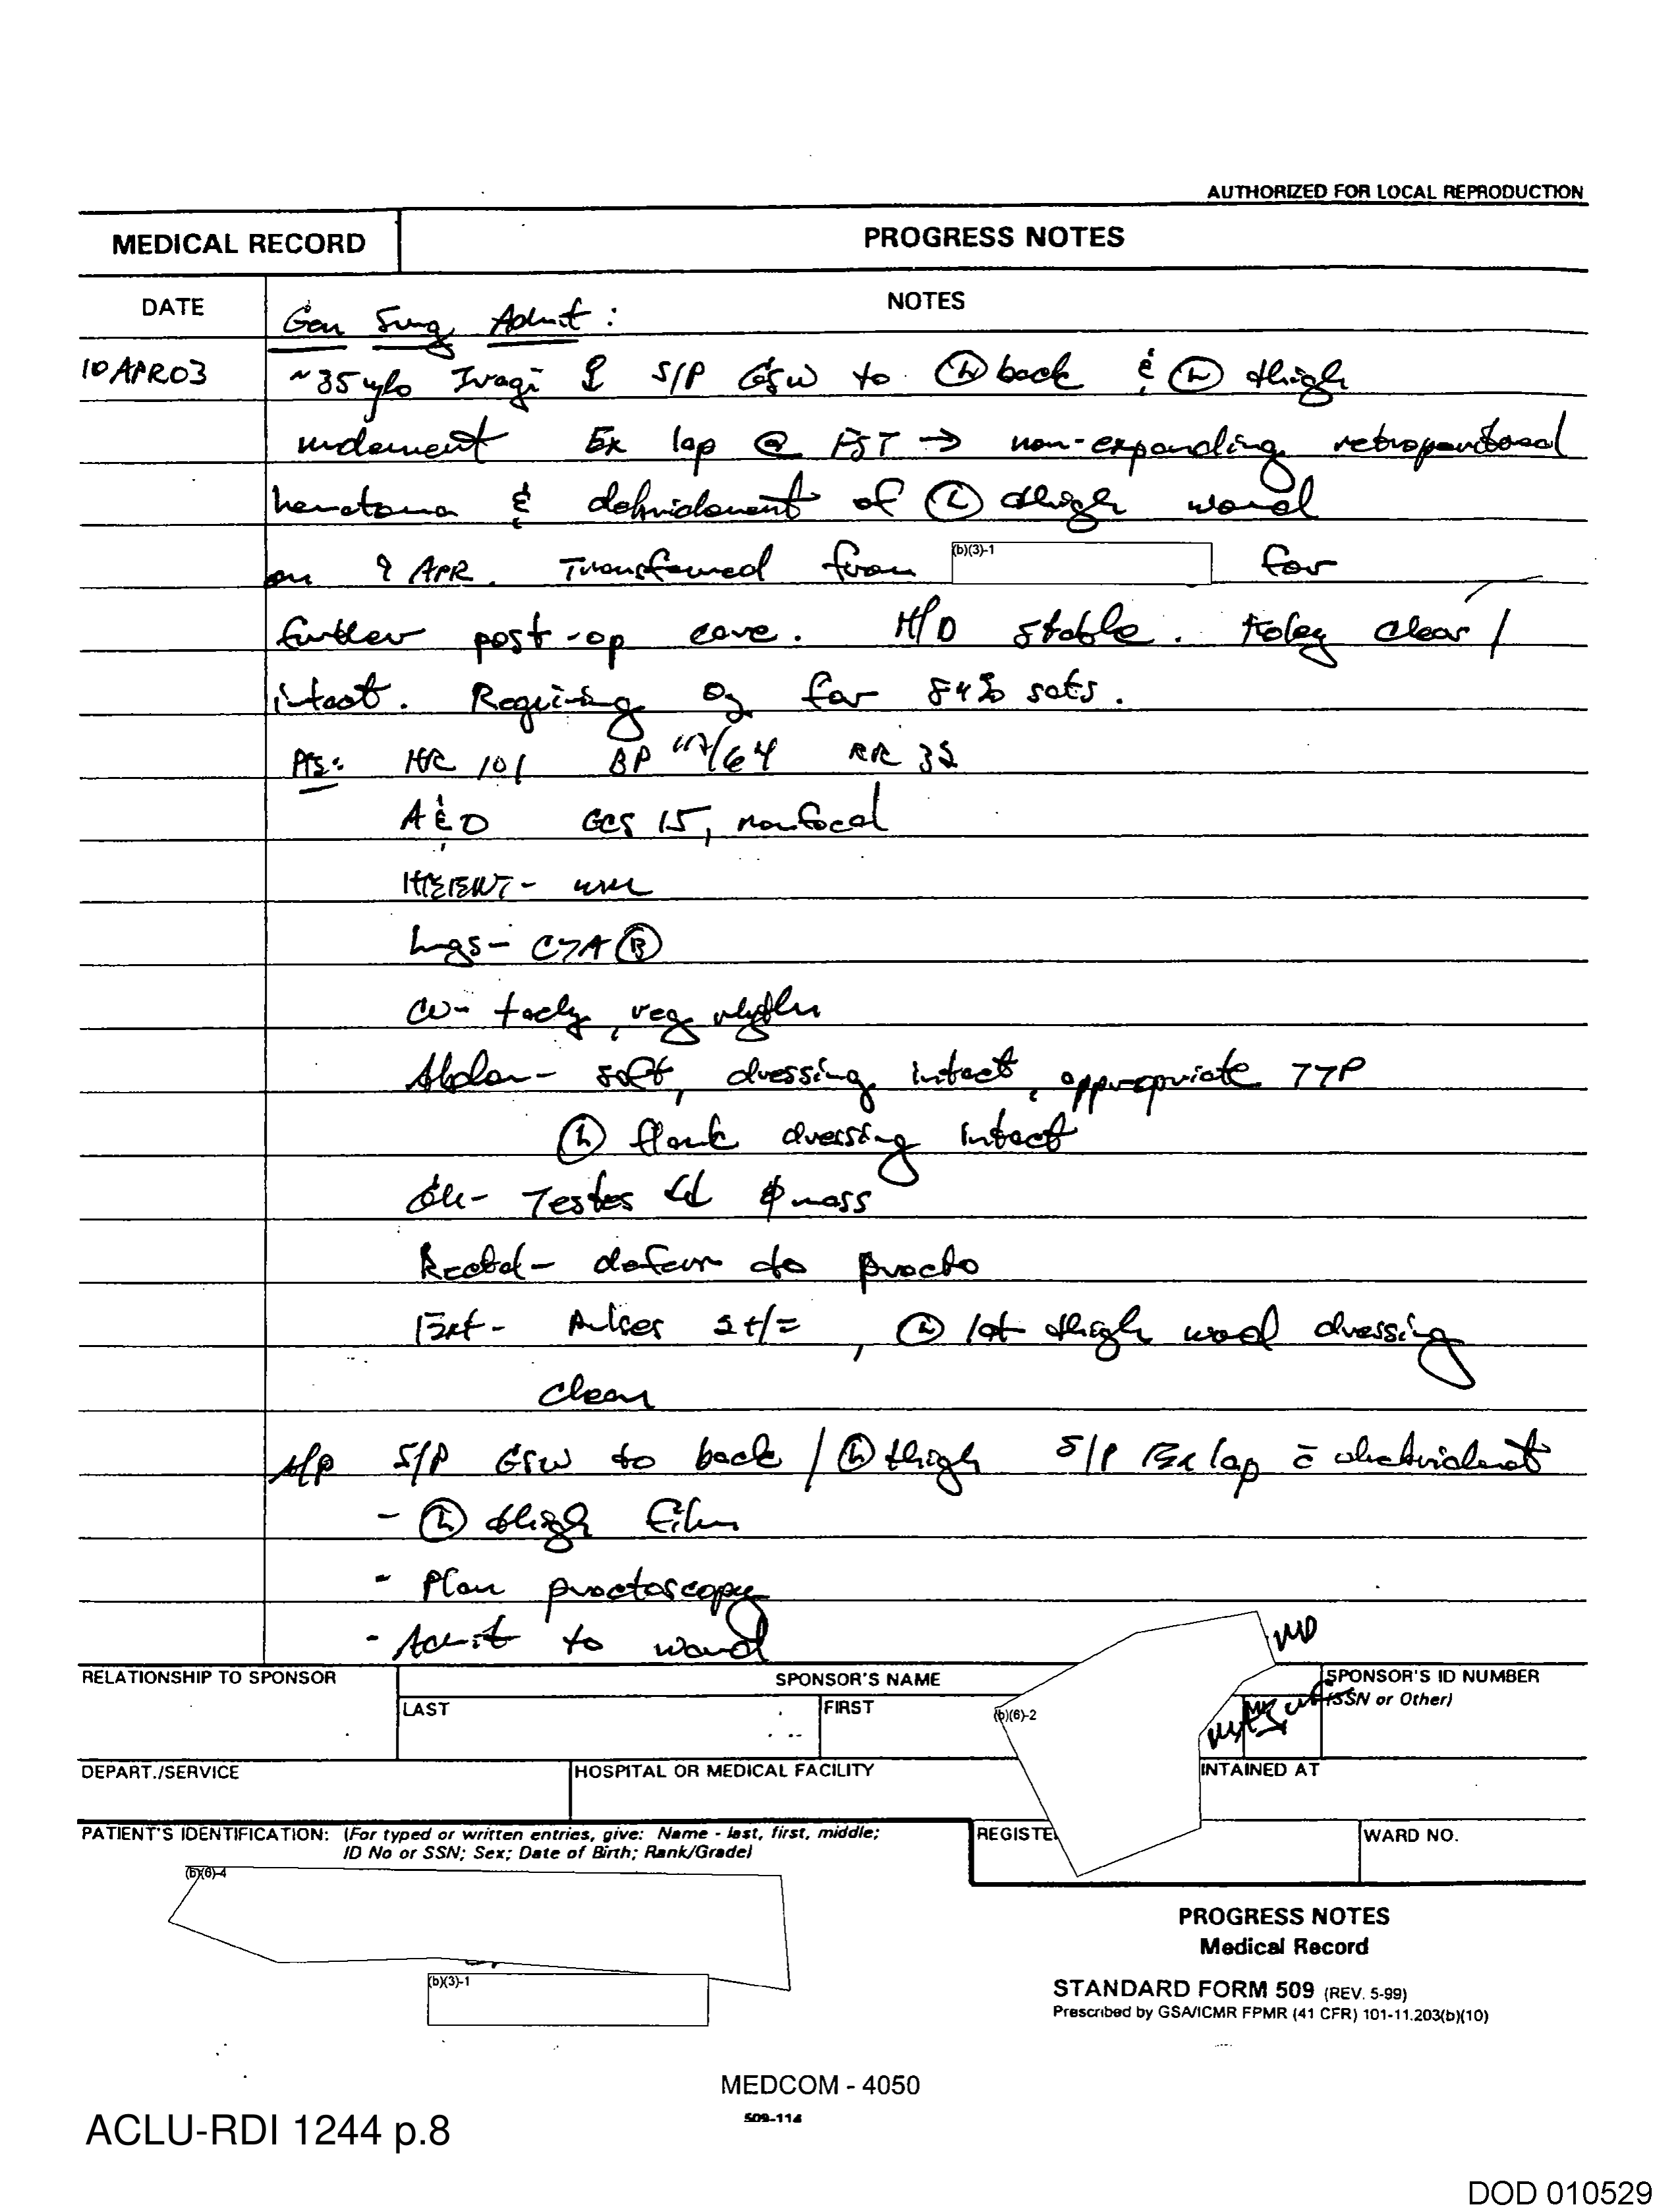 AUTHORIZED FOR LOCAL REPRODUCTION
MEDICAL RECORD
PROGRESS NOTES
DATE
NOTES
Gen Surg Admit :
10 APR 03
~35 y/o Iraqi S/P GSW to (L) back & (L) thigh
underwent Ex lap @ FST → non-expanding retroperitoneal
hematoma & debridement of (L) thigh wound
on 9 APR. Transferred from (b)(3)-1 for
further post-op care. H/D stable. Foley clear /
intact. Requiring O2 for 84% sats.
HR 101 BP 117/64 RR 32
A & O GCS 15, nonfocal
HEENT - WNL
Lungs - CTA (B)
CV - tachy, reg rhythm
Abdom - soft, dressing intact, appropriate TTP
(L) flank dressing intact
GU - Testes ↓d φ mass
Rectal - defer to procto
Ext - Pulses 2+/= , (L) lat thigh wound dressing
clean
A/P S/P GSW to back / (L) thigh S/P Ex lap c̄ debridement
- (L) thigh film
- Plan proctoscopy
- Admit to ward
MD
RELATIONSHIP TO SPONSOR
SPONSOR'S NAME
SPONSOR'S ID NUMBER
(SSN or Other)
LAST
FIRST
(b)(6)-2
DEPART./SERVICE
HOSPITAL OR MEDICAL FACILITY
INTAINED AT
PATIENT'S IDENTIFICATION: (For typed or written entries, give: Name - last, first, middle;
ID No or SSN; Sex; Date of Birth; Rank/Grade)
REGISTE
WARD NO.
(b)(6)-4
(b)(3)-1
PROGRESS NOTES
Medical Record
STANDARD FORM 509 (REV. 5-99)
Prescribed by GSA/ICMR FPMR (41 CFR) 101-11.203(b)(10)
MEDCOM - 4050
509-114
ACLU-RDI 1244 p.8
DOD 010529